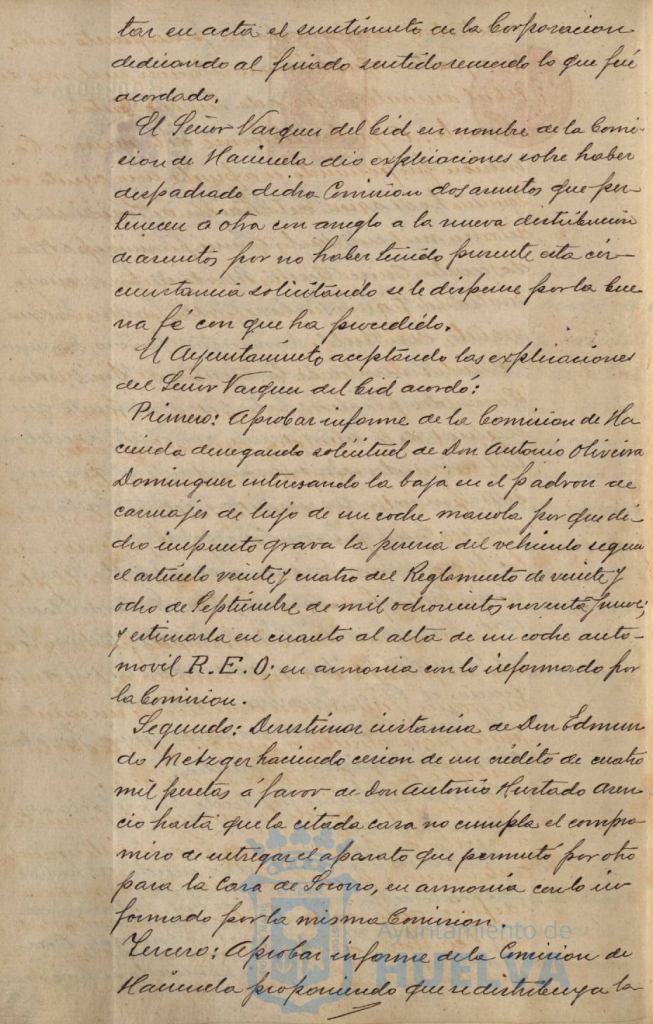 tar en acta el sentimiento de la Corporacion
dedicando al finado sentido recuerdo lo que fué
acordado.
El Señor Vazquez del Cid en nombre de la Comi-
sion de Hacienda dio explicaciones sobre haber
despachado dicha Comision dos asuntos que per-
tenecen á otra con arreglo a la nueva distribucion
de asuntos por no haber tenido presente esta cir-
cunstancia solicitando se le dispense por la bue
na fé con que ha procedido.
El Ayuntamiento aceptando las explicaciones
del Señor Vazquez del Cid acordó:
Primero: Aprobar informe de la Comision de Ha
cienda denegando solicitud de Don Antonio Oliveira
Dominguez interesando la baja en el padron de
carruajes de lujo de un coche manola por que di-
cho impuesto grava la posesia del vehiculo segun
el articulo veinte y cuatro del Reglamento de veinte y
ocho de Septiembre de mil ochocientos noventa y nueve;
y estimarla en cuanto al alta de un coche auto-
movil R.E.O; en armonia con lo informado por
la Comision.
Segundo: Desestimar instancia de Don Edmun
do Metzger haciendo cesion de un crédito de cuatro
mil pesetas á favor de Don Antonio Hurtado Asen-
cio hasta que la citada casa no cumpla el compro
miso de entregar el aparato que permutó por otro
para la Casa de Socorro, en armonia con lo in-
formado por la misma Comision.
Tercero: Aprobar informe de la Comision de
Hacienda proponiendo que se distribuya la
Ayuntamiento de
HUELVA